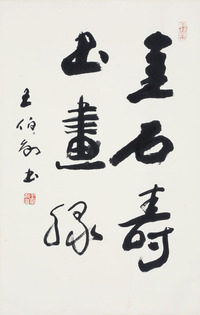 金石壽
書畫緣
王伯敏書